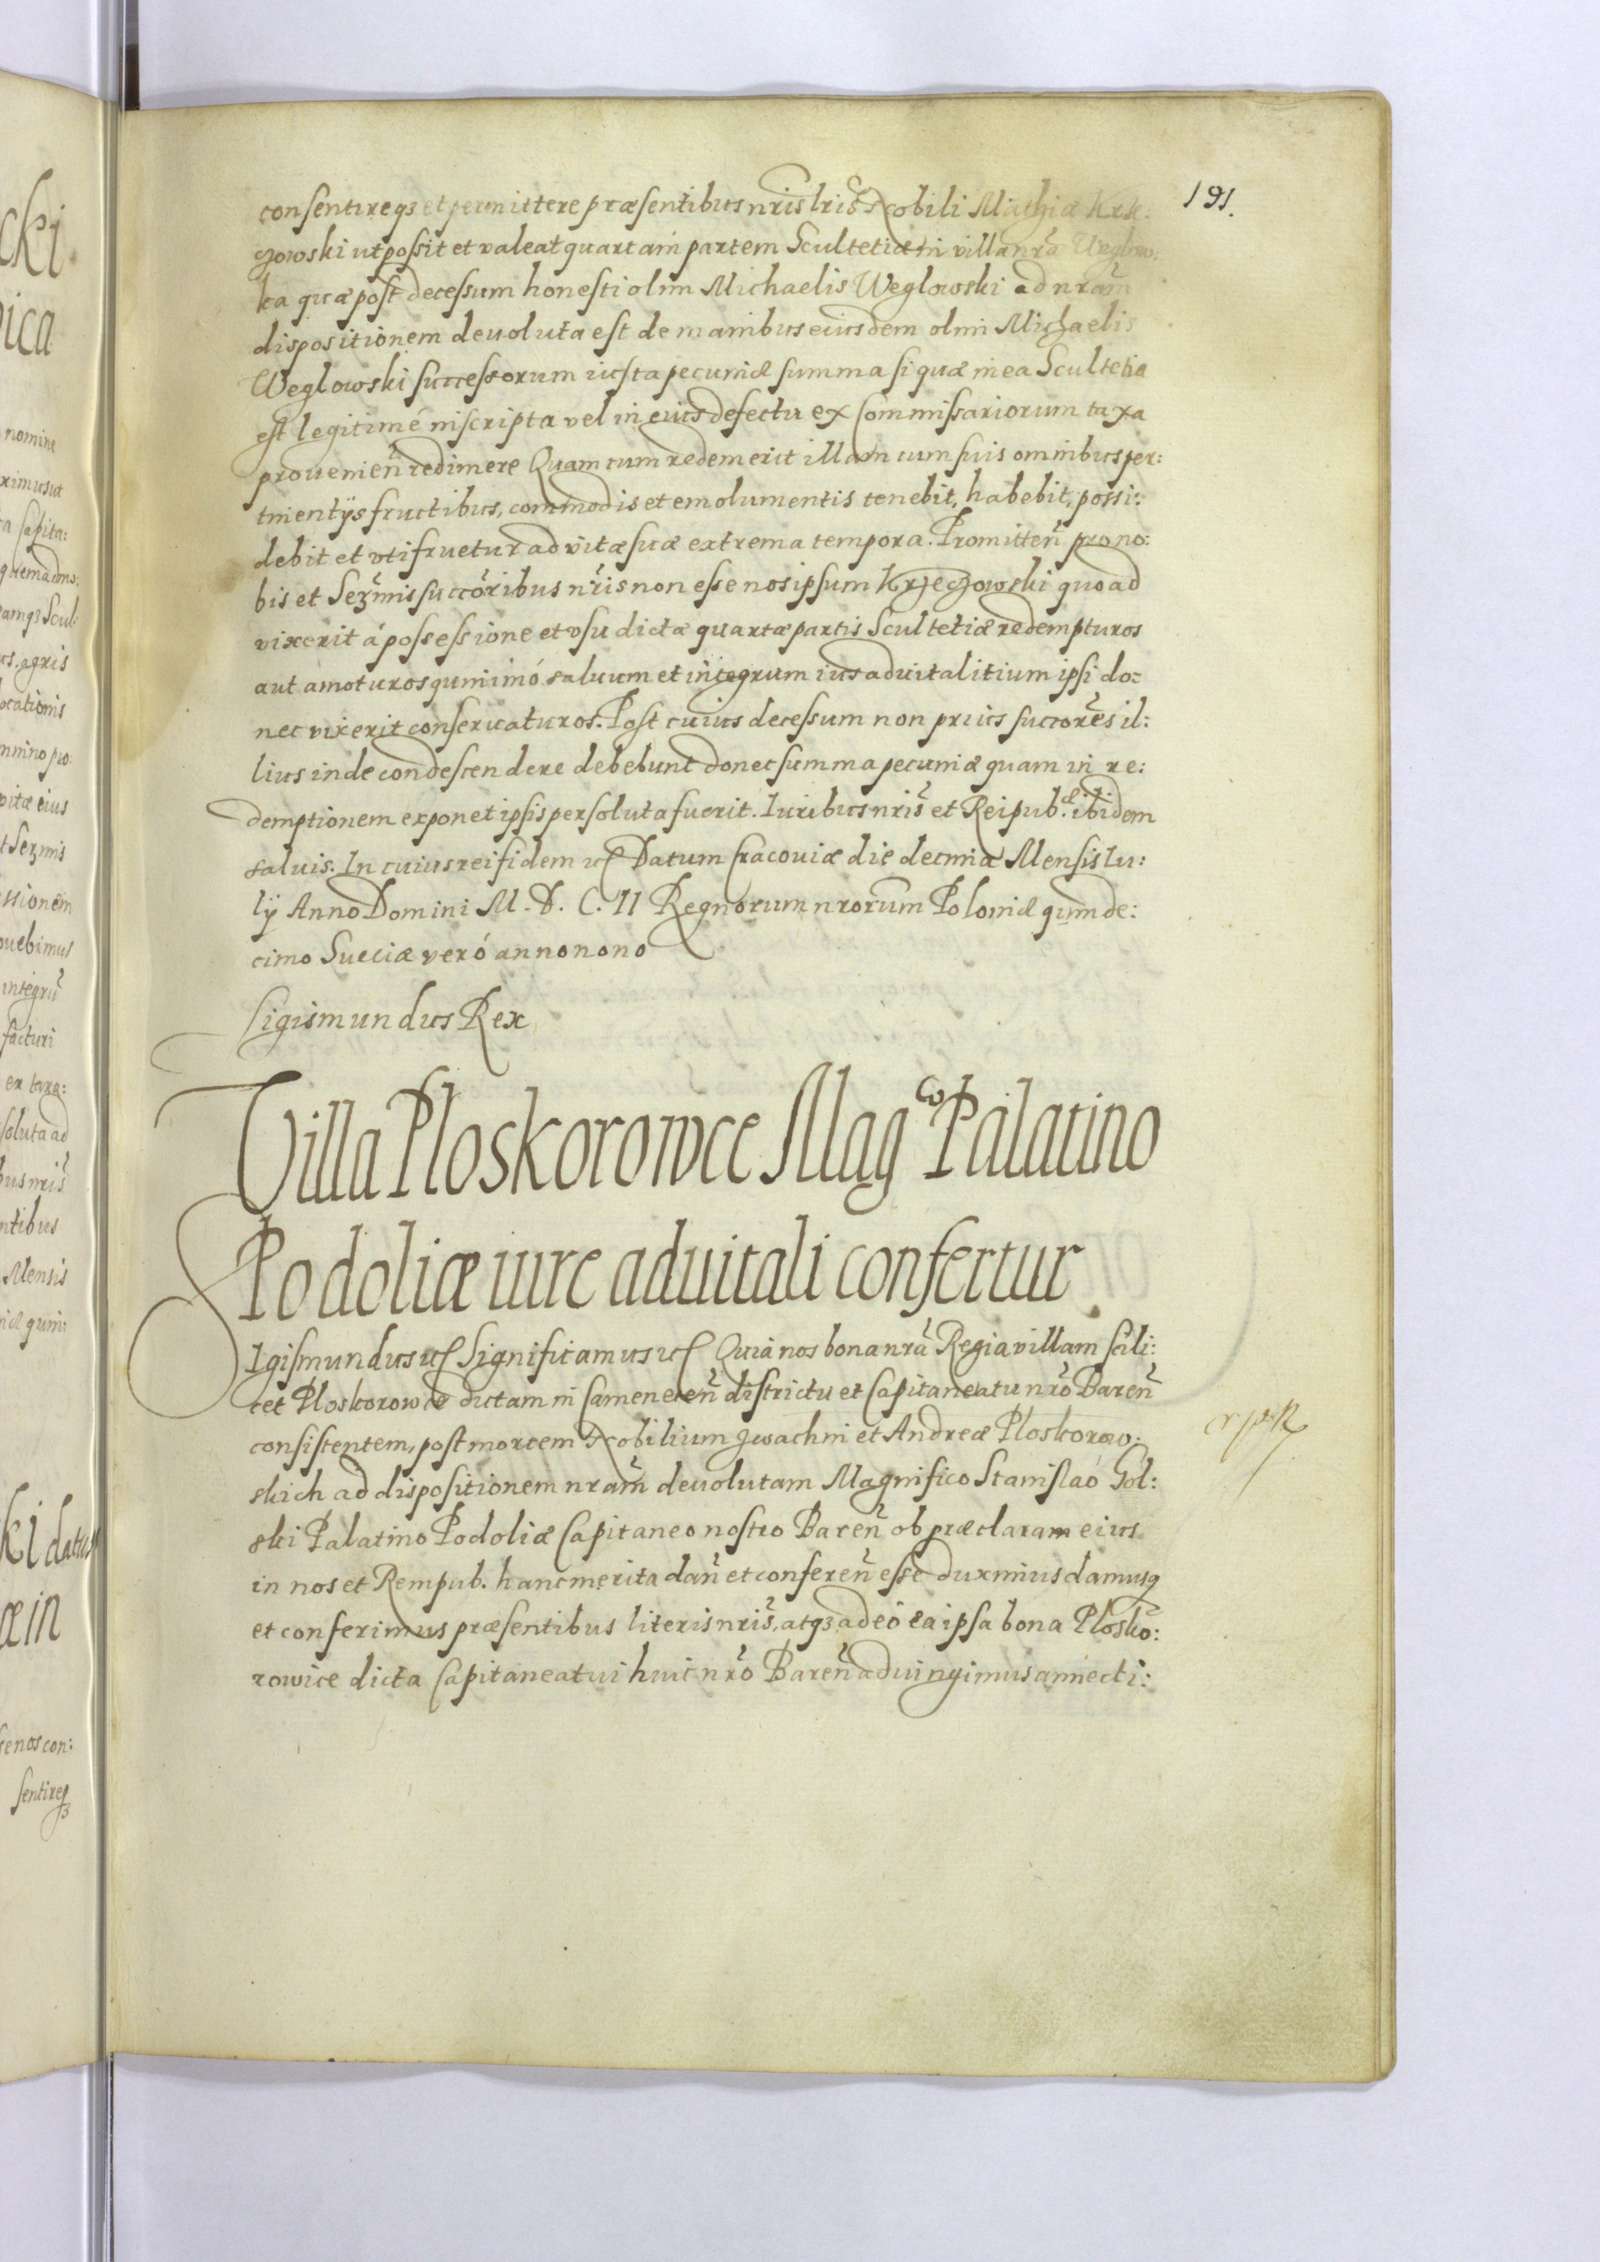 191.
consentireqȝ et permittere præsentibus nr̃is lris Nobili Mathiæ Krze:
czowski ut possit et valeat quartam partem Scultetiæ in villa nr̃a Węglow:
ka quæ post decessum honesti olim Michaelis Weglowski ad nram̃
dispositionem devoluta est de manibus eiusdem olim Michaelis
Weglowski successorum iusta pecuniæ summa si quæ in ea Scultetia
est legitimé inscripta vel in eius defectu ex Commissariorum taxa
provenień redimere Quam cum redemerit illam cum suis omnibus per:
tinentÿs fructibus, commodis et emolumentis tenebit, habebit, possi:
debit et utifruetur ad vitæ suæ extrema tempora. Promitteñ pro no:
bis et Serm̃is succor̃ibus nr̃is non esse nos ipsum Krzeczowski quoad
vixerit á possessione et vsu dictæ quartæ partis Scultetiæ redempturos
aut amoturos quinimó salvum et integrum ius advitalitium ipsi do:
nec vixerit conservaturos. Post cuius decessum non prius succores̃ il:
lius inde condescendere debebunt donec summa pecuniæ quam in re:
demptionem exponet ipsis persoluta fuerit. Iuribus nris̃ et Reipub.æ ibidem
salvis. In cuius rei fidem ec Datum Cracoviæ die decima Mensis Iu:
lÿ Anno Domini M. D. C. II Regnorum nrorum̃ Poloniæ quinde:
cimo Sueciæ veró anno nono
Sigismundus Rex
Villa Ploskorowce Magco Palatino
Podoliæ iure advitali confertur
Sigismundus ec Significamus ec Quia nos bona nrã Regia villam scili:
cet Ploskorowce dictam in Cameneceñ districtu et Capitaneatu nrõ Bareñ
consistentem, post mortem Nobilium Iwachni et Andreæ Ploskorow:
skich ad dispositionem nram̃ devolutam Magnifico Stanislao Gol:
ski Palatino Podoliæ Capitaneo nostro Bareñ ob præclaram eius
in nos et Rempub. hanc merita dañ et confereñ esse duximus damusq
et conferimus præsentibus literis nris̃, atqȝ adeó ea ipsa bona Plosko:
rowice dicta Capitaneatui huic nrõ Bareñ adiungimus annecti: